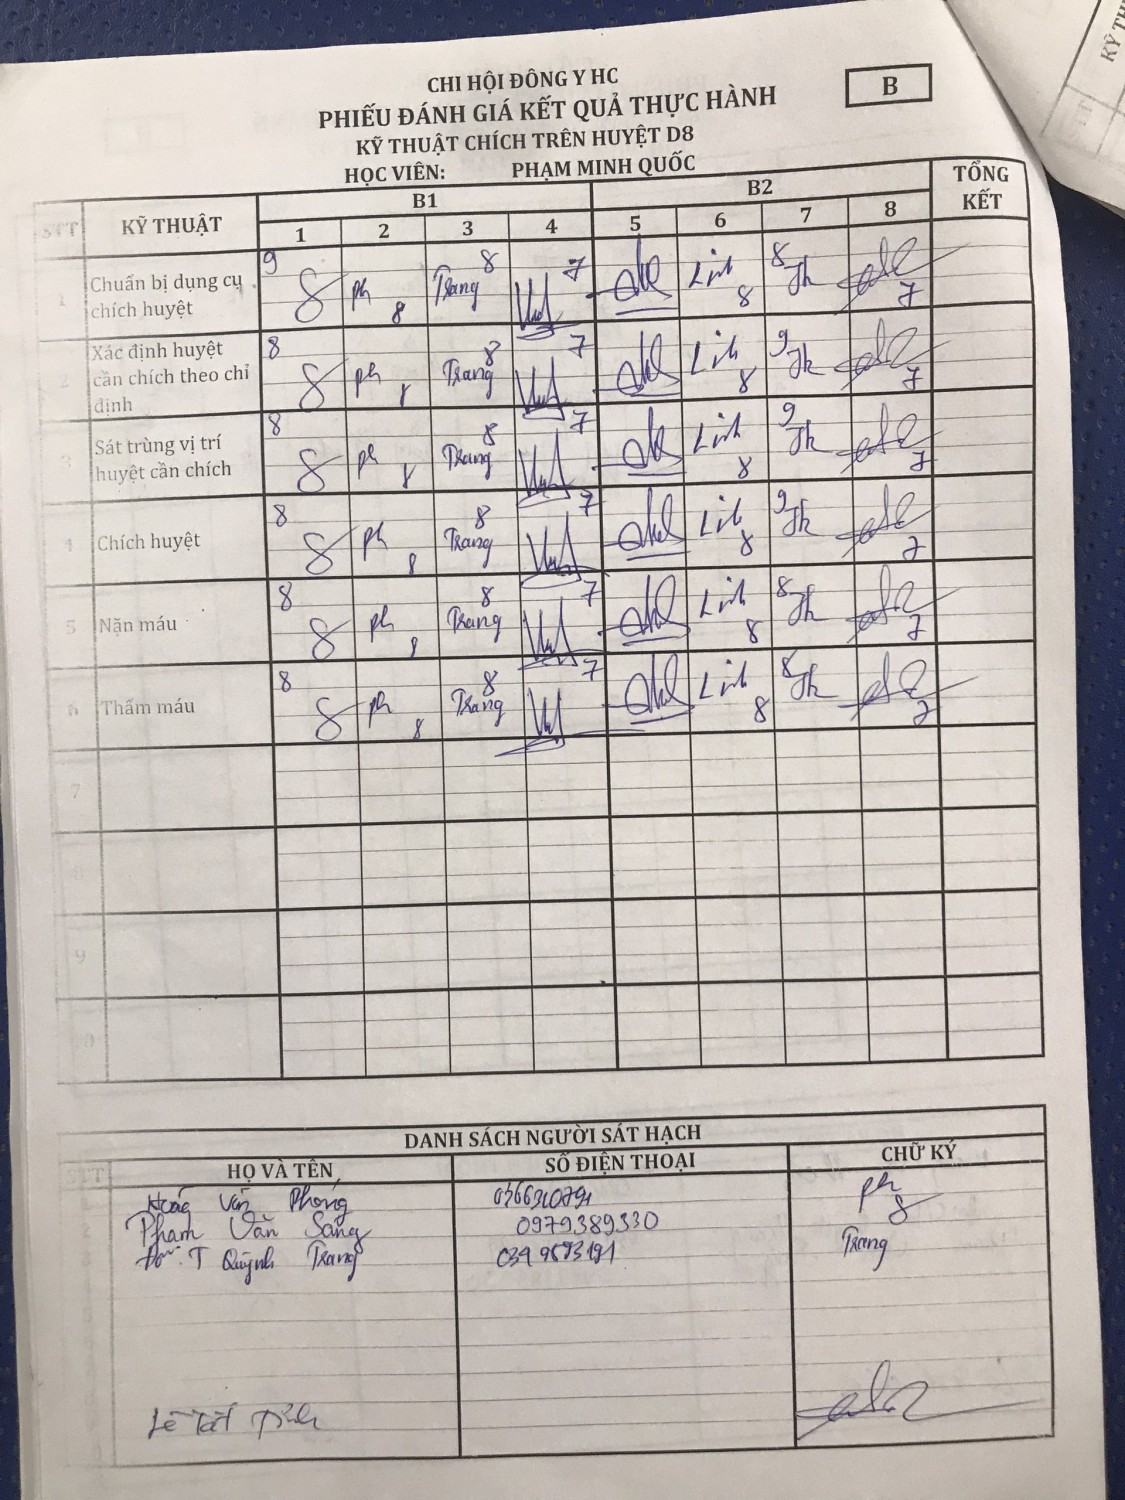 CHI HỘI ĐÔNG Y HC
B
PHIẾU ĐÁNH GIÁ KẾT QUẢ THỰC HÀNH
KỸ THUẬT CHÍCH TRÊN HUYỆT D8
HỌC VIÊN: PHẠM MINH QUỐC
STT KỸ THUẬT B1 B2 TỔNG KẾT
1 2 3 4 5 6 7 8
1 Chuẩn bị dụng cụ chích huyệt 9 8 Ph 8 Trang 8 7 Linh 8 8 Th 7
2 Xác định huyệt cần chích theo chỉ định 8 8 Ph 8 Trang 8 7 Linh 8 9 Th 7
3 Sát trùng vị trí huyệt cần chích 8 8 Ph 8 Trang 8 7 Linh 8 9 Th 7
4 Chích huyệt 8 8 Ph 8 Trang 8 7 Linh 8 9 Th 7
5 Nặn máu 8 8 Ph 8 Trang 8 7 Linh 8 8 Th 7
6 Thấm máu 8 8 Ph 8 Trang 8 7 Linh 8 8 Th 7
7
8
9
10
DANH SÁCH NGƯỜI SÁT HẠCH
STT HỌ VÀ TÊN SỐ ĐIỆN THOẠI CHỮ KÝ
Văn Phong Ph
Phạm Văn Sáng 0979389330 8
T Quỳnh Trang Trang
Lê Tất